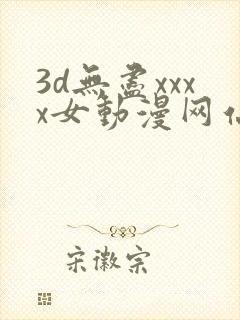 3d無盡xxx
x女動漫网
宋徽宗